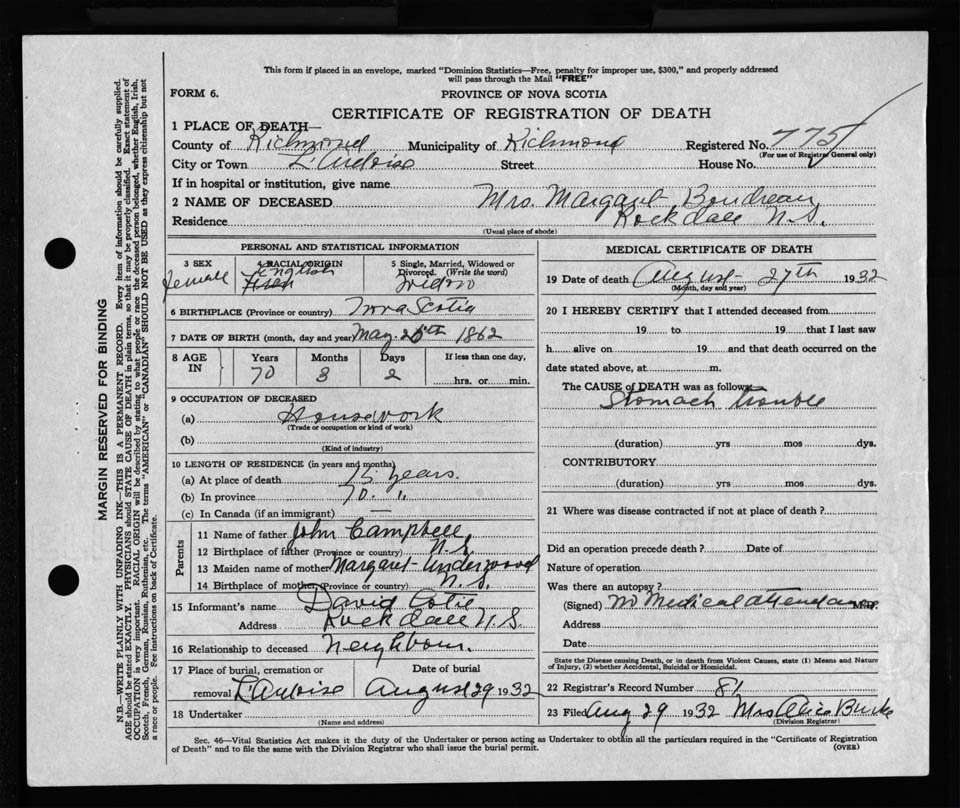 This form if placed in an envelope, marked "Dominion Statistics—Free, penalty for improper use, $300," and properly addressed
will pass through the Mail "FREE"
FORM 6.
PROVINCE OF NOVA SCOTIA
CERTIFICATE OF REGISTRATION OF DEATH
1 PLACE OF DEATH—
County of Richmond Municipality of Richmond Registered No. 775
(For use of Registrar General only)
City or Town L'Ardoise Street House No.
If in hospital or institution, give name
2 NAME OF DECEASED Mrs. Margaret Boudreau
Residence Rockdale N.S.
(Usual place of abode)
PERSONAL AND STATISTICAL INFORMATION
3 SEX
Female
4 RACIAL ORIGIN
English
5 Single, Married, Widowed or
Divorced. (Write the word)
Widow
6 BIRTHPLACE (Province or country) Nova Scotia
7 DATE OF BIRTH (month, day and year) May 25th 1862
8 AGE
IN
Years
70
Months
3
Days
2
If less than one day,
hrs. or min.
9 OCCUPATION OF DECEASED
(a) Housework
(Trade or occupation or kind of work)
(b)
(Kind of industry)
10 LENGTH OF RESIDENCE (in years and months)
(a) At place of death 15 years.
(b) In province 70 "
(c) In Canada (if an immigrant) —
Parents
11 Name of father John Campbell
12 Birthplace of father (Province or country) N.S.
13 Maiden name of mother Margaret Underwood
14 Birthplace of mother (Province or country) N.S.
15 Informant's name David
Address Rockdale N.S.
16 Relationship to deceased Neighbour.
17 Place of burial, cremation or
removal L'Ardoise
Date of burial
August 29 1932
18 Undertaker
(Name and address)
MEDICAL CERTIFICATE OF DEATH
19 Date of death August 27th 1932
(Month, day and year)
20 I HEREBY CERTIFY that I attended deceased from
19 to 19 that I last saw
h alive on 19 and that death occurred on the
date stated above, at m.
The CAUSE of DEATH was as follows:
Stomach trouble
(duration) yrs mos dys.
CONTRIBUTORY
(duration) yrs mos dys.
21 Where was disease contracted if not at place of death?
Did an operation precede death? Date of
Nature of operation
Was there an autopsy?
(Signed) No Medical attendance M.D.
Address
Date
State the Disease causing Death, or in death from Violent Causes, state (1) Means and Nature
of Injury, (2) whether Accidental, Suicidal or Homicidal.
22 Registrar's Record Number
23 Filed Aug 29 1932 Mrs Alice Burke
(Division Registrar)
Sec. 46—Vital Statistics Act makes it the duty of the Undertaker or person acting as Undertaker to obtain all the particulars required in the "Certificate of Registration
of Death" and to file the same with the Division Registrar who shall issue the burial permit.
(OVER)
MARGIN RESERVED FOR BINDING
N.B.—WRITE PLAINLY WITH UNFADING INK—THIS IS A PERMANENT RECORD. Every item of information should be carefully supplied.
AGE should be stated EXACTLY. PHYSICIANS should STATE CAUSE OF DEATH in plain terms, so that it may be properly classified. Exact statement of
OCCUPATION is very important. RACIAL ORIGIN will be described by stating to what people or race the deceased person belonged, whether English, Irish,
Scotch, French, German, Russian, Ruthenian, etc. The terms "AMERICAN" or "CANADIAN" SHOULD NOT BE USED as they express citizenship but not
a race or people. Fee instructions on back of Certificate.